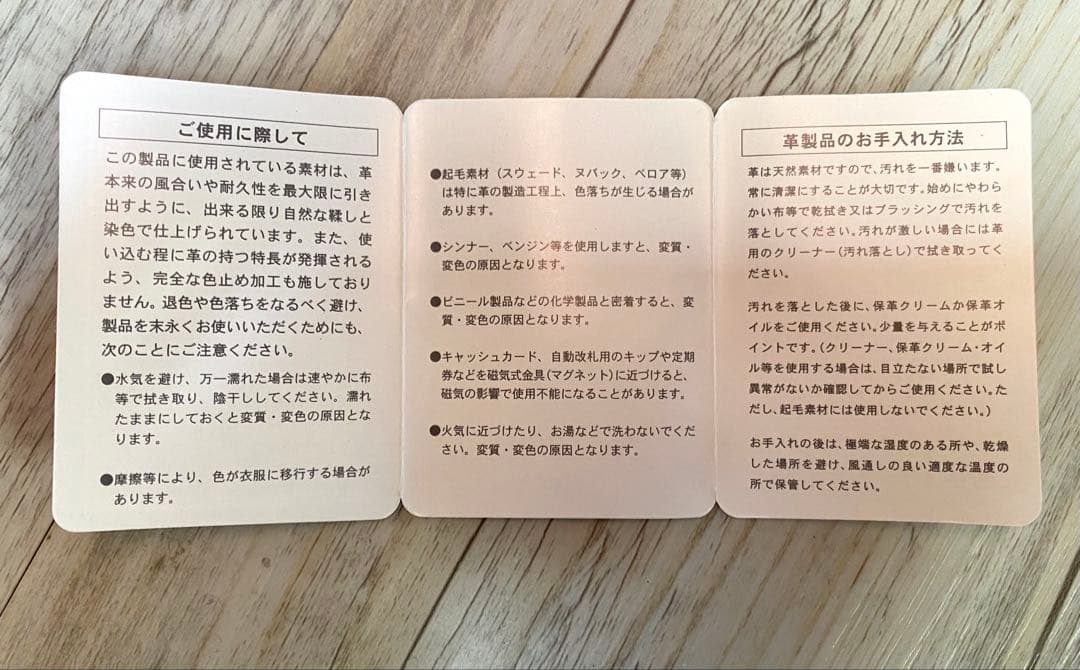 ご使用に際して
この製品に使用されている素材は、革
本来の風合いや耐久性を最大限に引き
出すように、出来る限り自然な鞣しと
染色で仕上げられています。また、使
い込む程に革の持つ特長が発揮される
よう、完全な色止め加工も施しており
ません。退色や色落ちをなるべく避け、
製品を末永くお使いいただくためにも、
次のことにご注意ください。
●水気を避け、万一濡れた場合は速やかに布
等で拭き取り、陰干ししてください。濡れ
たままにしておくと変質・変色の原因とな
ります。
●摩擦等により、色が衣服に移行する場合が
あります。
●起毛素材（スウェード、ヌバック、ベロア等）
は特に革の製造工程上、色落ちが生じる場合が
あります。
●シンナー、ベンジン等を使用しますと、変質・
変色の原因となります。
●ビニール製品などの化学製品と密着すると、変
質・変色の原因となります。
●キャッシュカード、自動改札用のキップや定期
券などを磁気式金具（マグネット）に近づけると、
磁気の影響で使用不能になることがあります。
●火気に近づけたり、お湯などで洗わないでくだ
さい。変質・変色の原因となります。
革製品のお手入れ方法
革は天然素材ですので、汚れを一番嫌います。
常に清潔にすることが大切です。始めにやわら
かい布等で乾拭き又はブラッシングで汚れを
落としてください。汚れが激しい場合には革
用のクリーナー（汚れ落とし）で拭き取ってく
ださい。
汚れを落とした後に、保革クリームか保革オ
イルをご使用ください。少量を与えることがポ
イントです。（クリーナー、保革クリーム・オイ
ル等を使用する場合は、目立たない場所で試し
異常がないか確認してからご使用ください。た
だし、起毛素材には使用しないでください。）
お手入れの後は、極端な湿度のある所や、乾燥
した場所を避け、風通しの良い適度な温度の
所で保管してください。